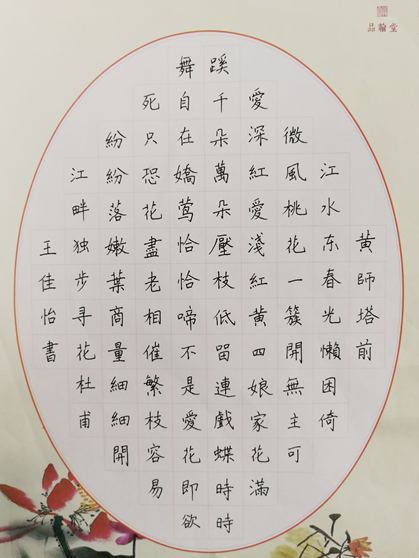 品翰堂
黄師塔前
江水东春光懶困倚
微風桃花一簇開無主可
愛深紅愛淺紅黄四娘家花滿
蹊千朵萬朵壓枝低留連戲蝶時時
舞自在嬌莺恰恰啼不是愛花即欲
死只恐花盡老相催繁枝容易
紛紛落嫩葉商量細細開
江畔独步寻花杜甫
王佳怡書